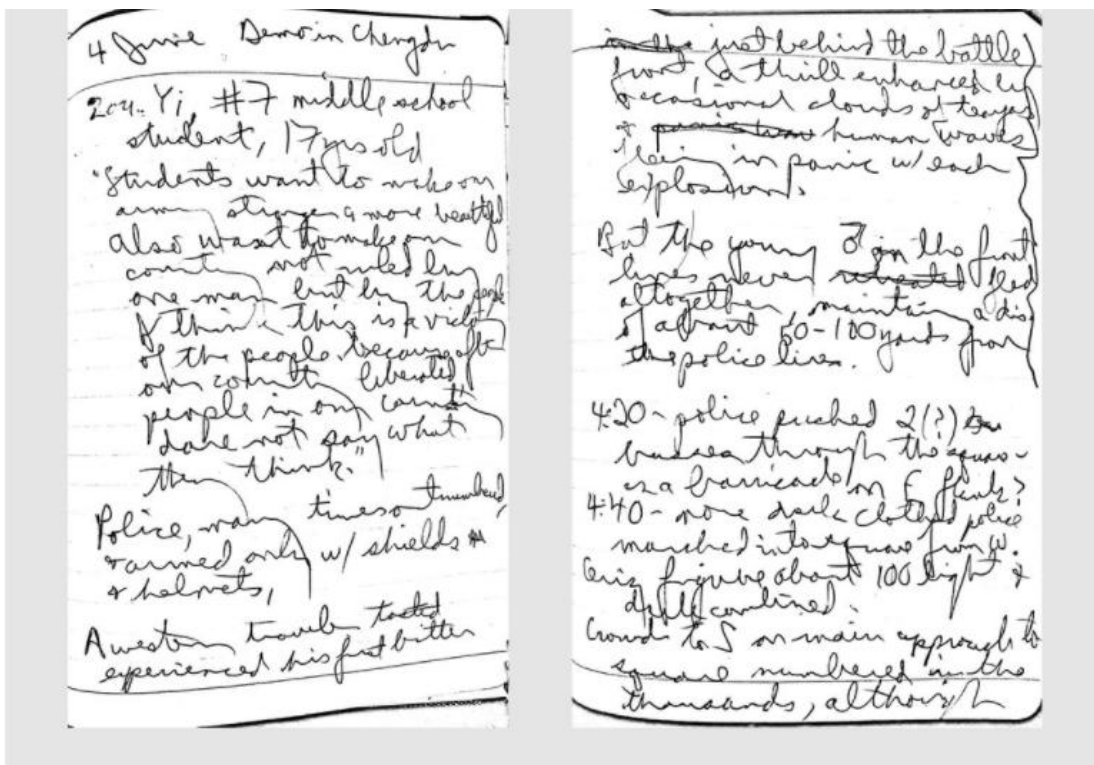 4 June Demo in Chengdu
Yi, #7 middle school
student, 17 yrs old
"Students want to make our
army stronger & more beautiful
also want to make our
country not ruled by
one man but by the people
I think this is a victory
of the people because after
our country liberated
people in our country
dare not say what
they think."
Police, many times outnumbered,
& armed only w/ shields
& helmets,
A western traveler tasted
experienced his first bitter
in the just behind the battle
front, a thrill enhanced by
occasional clouds of teargas
& human waves
fleeing in panic w/ each
explosion.
But the young ♂ on the front
lines never retreated fled
altogether, maintain a dis.
of about 50-100 yards from
the police lines.
4:20 - police pushed 2(?)
busses through the square -
as a barricade on E flank?
4:40 - more dark clothed police
marched into square from W.
figure about 100 light &
dark combined.
Crowds to S on main approach to
square numbered in the
thousands, although